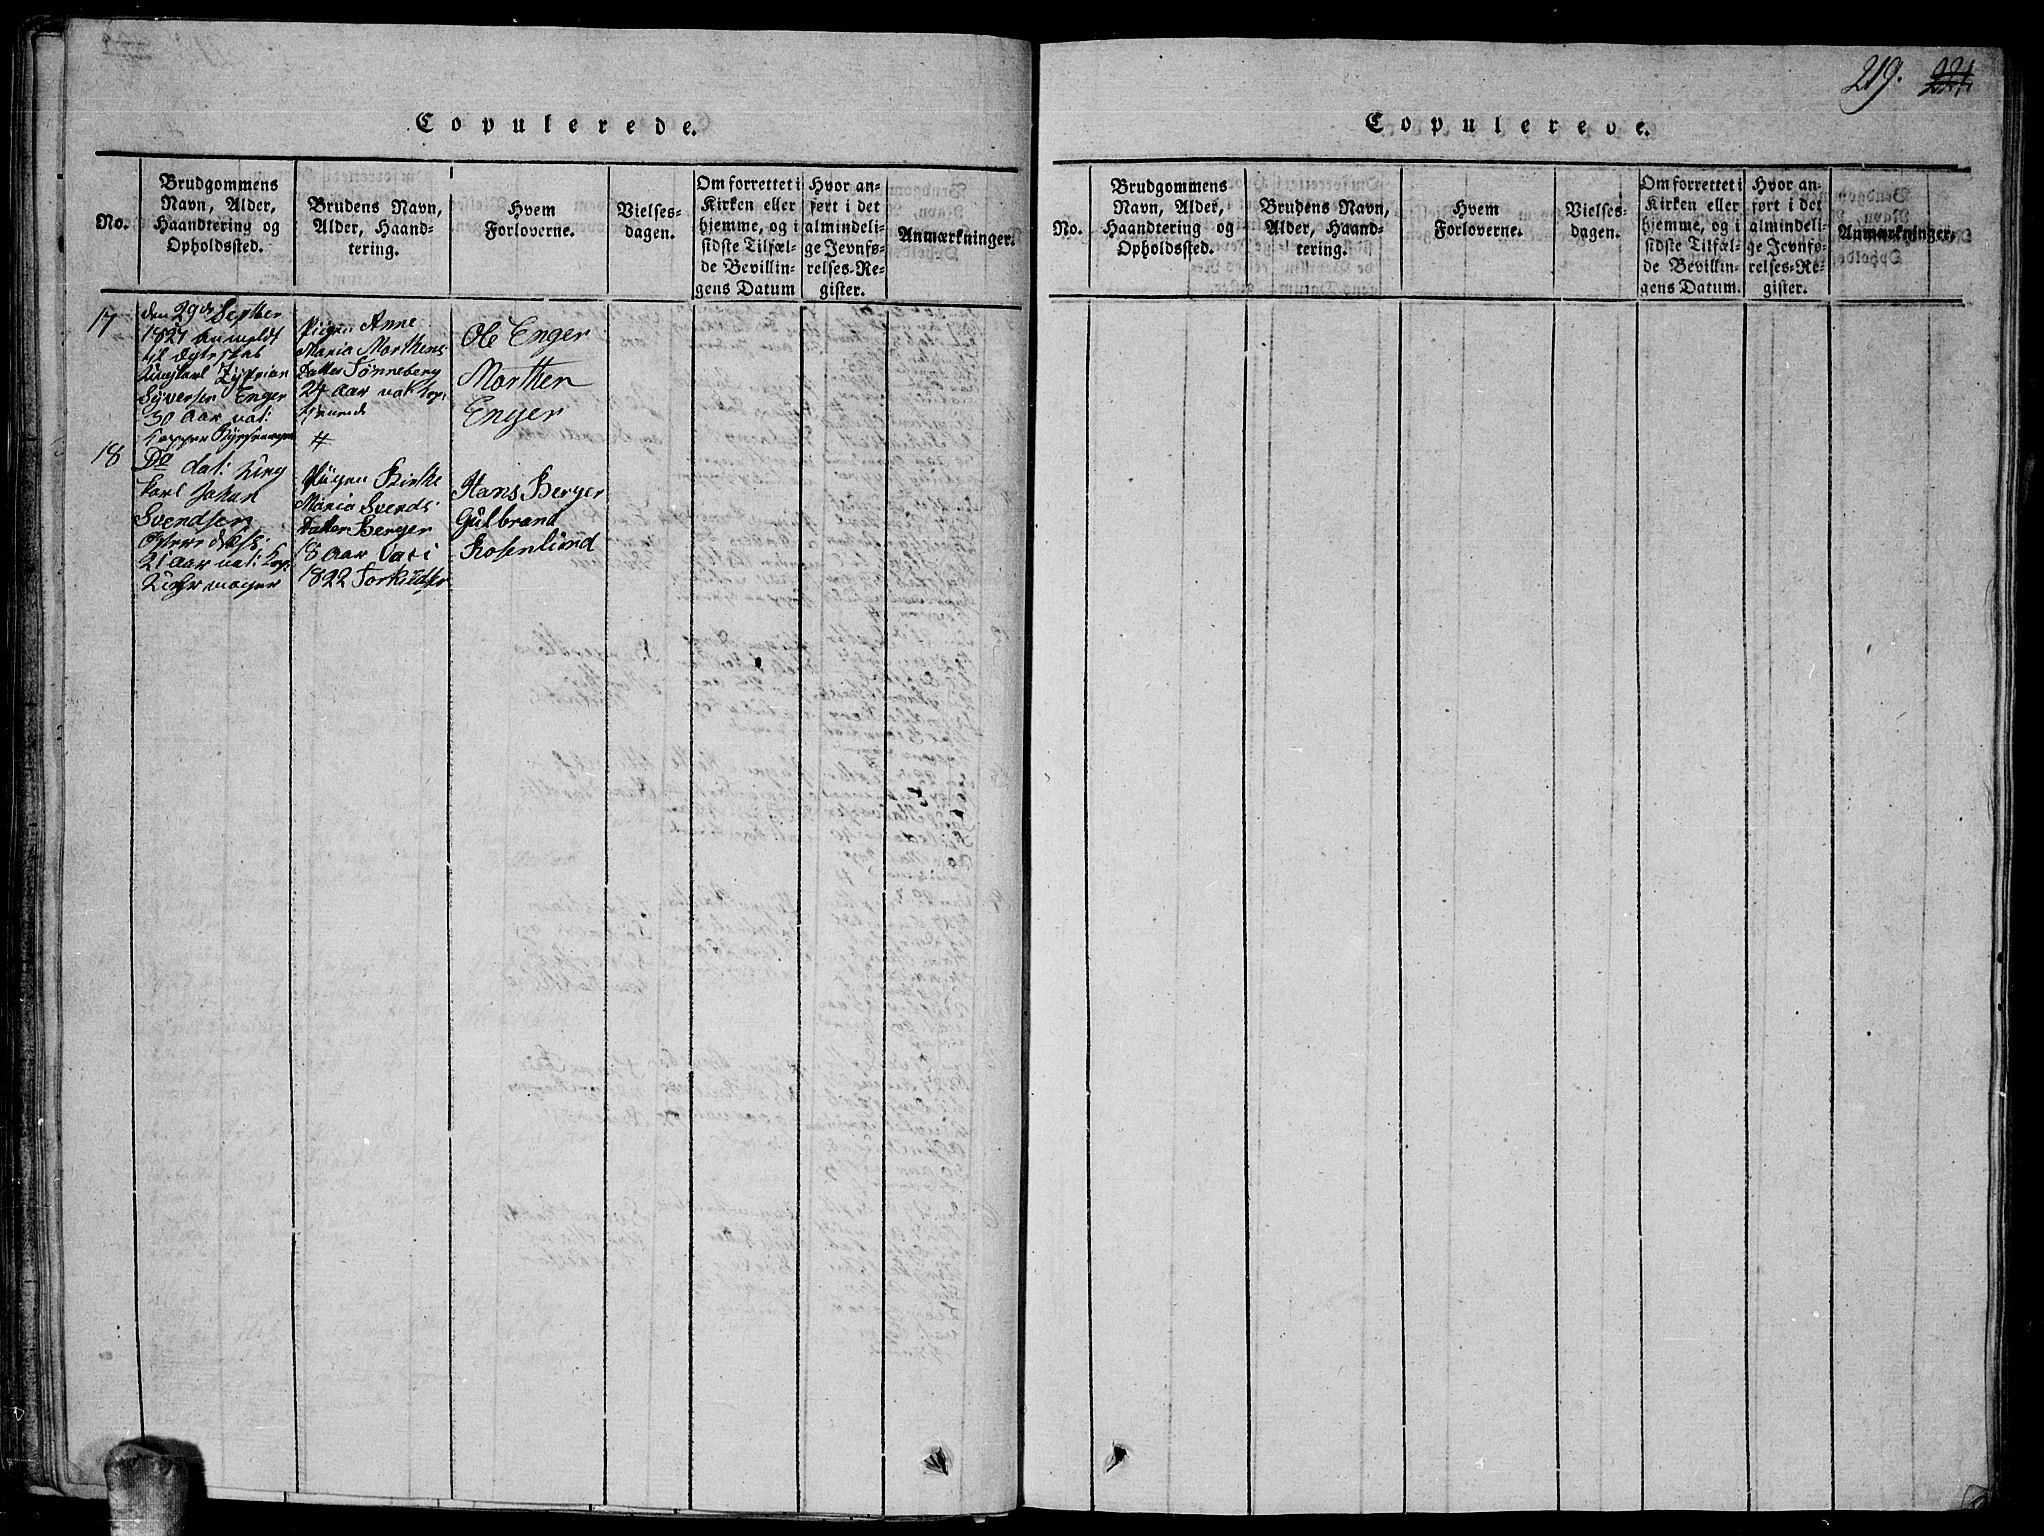 Copulerede.
No.
Brudgommens
Navn, Alder,
Haandtering og
Opholdssted.
Brudens Navn,
Alder, Haand-
tering.
Hvem
Forloverne.
Vielses-
dagen.
Om forrettet i
Kirken eller
hjemme, og i
sidste Tilfæl-
de Bevillin-
gens Datum
Hvor an-
ført i det
almindeli-
ge Jevnfø-
relses-Re-
gister.
Anmærkninger.
17
den 29de Septber
1827 anmeldt
til Ægteskab
Ungkarl
Syversen Enger
30 Aar vac:
Pigen Anne
Maria Morthens
Datter Tønneberg
24 Aar vac:
Ole Enger
Morthen
Enger
18
Do dat: Ung
karl Johan
Svendsen
21 Aar vac:
Pigen Birthe
Maria Svends
Datter Berger
18 Aar vac:
1822
Hans Berger
Gulbrand
Rosenlund
219. 221
Copulerede.
No.
Brudgommens
Navn, Alder,
Haandtering og
Opholdssted.
Brudens Navn,
Alder, Haand-
tering.
Hvem
Forloverne.
Vielses-
dagen.
Om forrettet i
Kirken eller
hjemme, og i
sidste Tilfæl-
de Bevillin-
gens Datum.
Hvor an-
ført i det
almindeli-
ge Jevnfø-
relses-Re-
gister.
Anmærkninger.